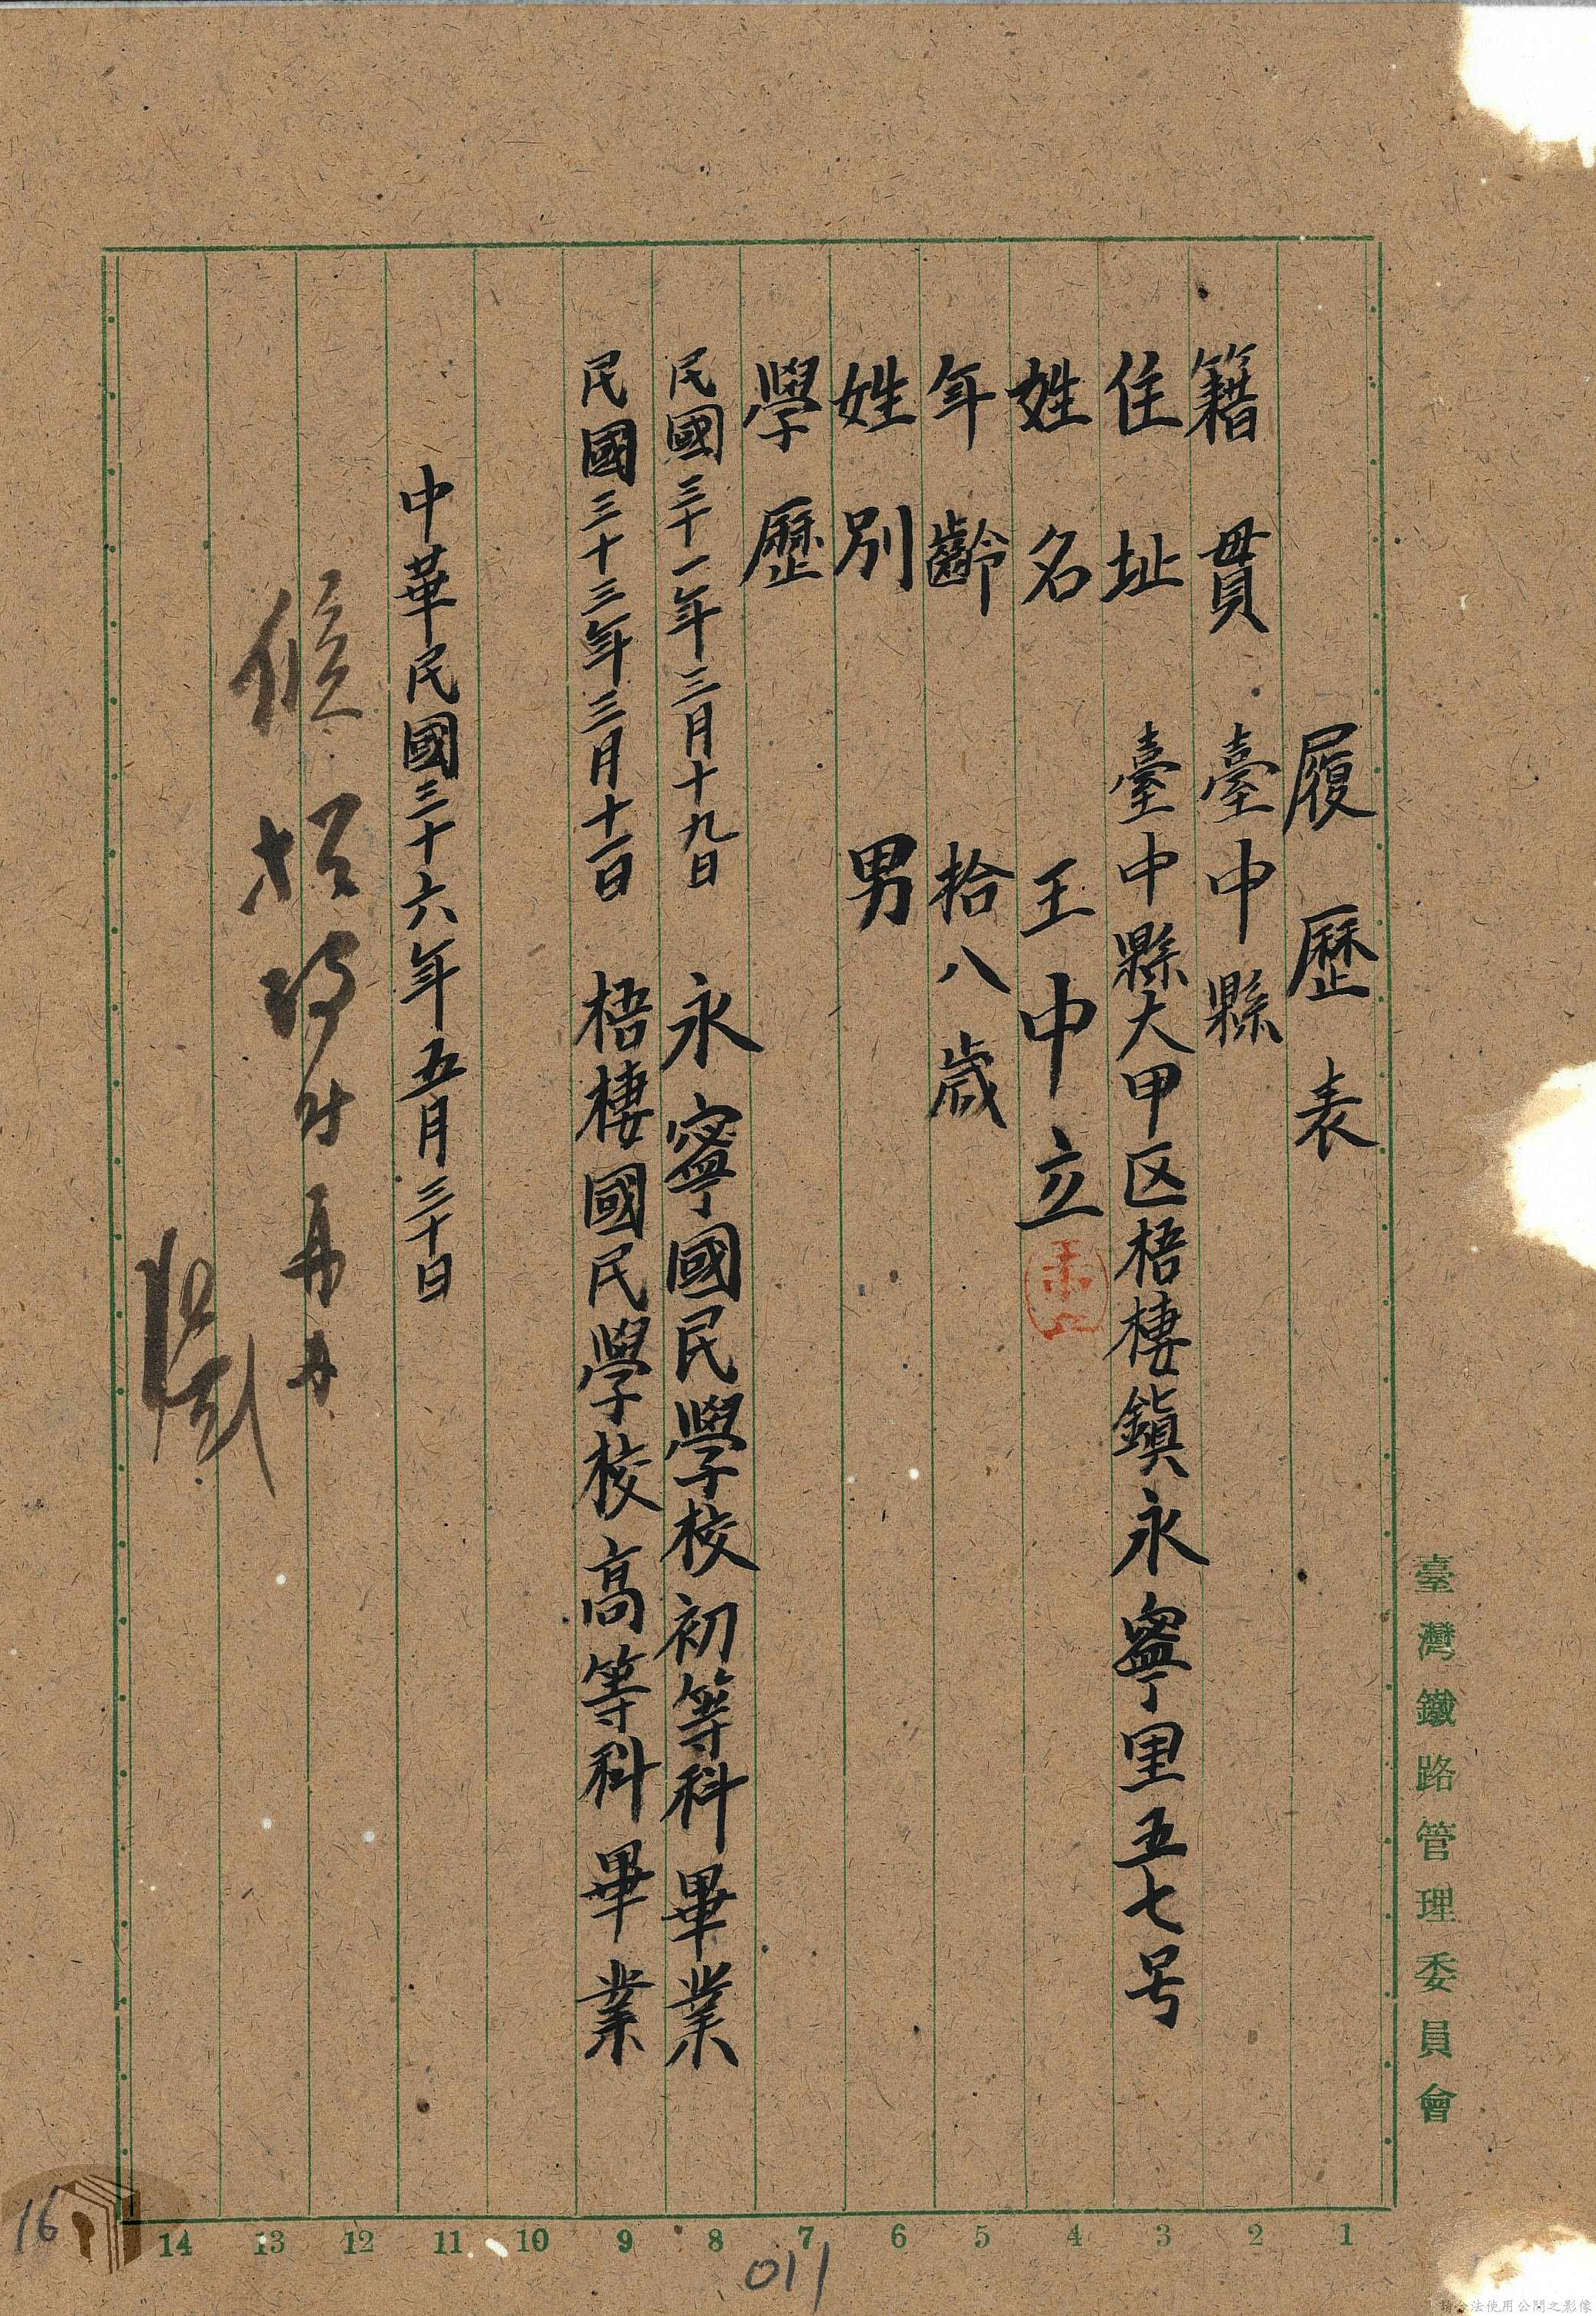 履歷表
籍貫 臺中縣
住址 臺中縣大甲区梧棲鎮永寧里五七号
姓名 王中立
年齡 拾八歲
姓別 男
學歷
民國三十一年三月十九日 永寧國民學校初等科畢業
民國三十三年三月十一日 梧棲國民學校高等科畢業
中華民國三十六年五月三十日
臺灣鐵路管理委員會
1 2 3 4 5 6 7 8 9 10 11 12 13 14
011
16
請合法使用公開之影像